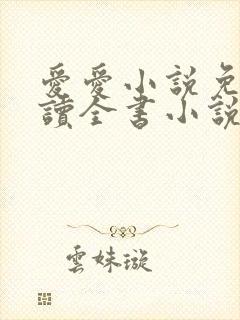 愛愛小說免
讀全書小說
雲妹璇